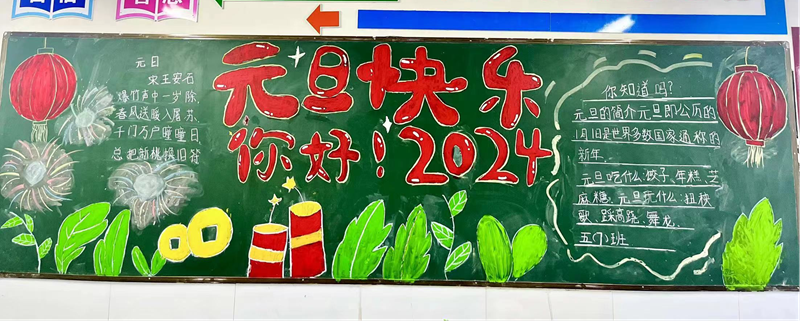 元日
宋王安石
爆竹声中一岁除,
春风送暖入屠苏.
千门万户曈曈日
总把新桃换旧符
元旦快乐
你好!2024
你知道吗?
元旦的简介元旦即公历的
1月1日是世界多数国家通称的
新年.
元旦吃什么:饺子、年糕、芝
麻糖、元旦玩什么:扭秧
歌、踩高跷、舞龙.
五(7)班